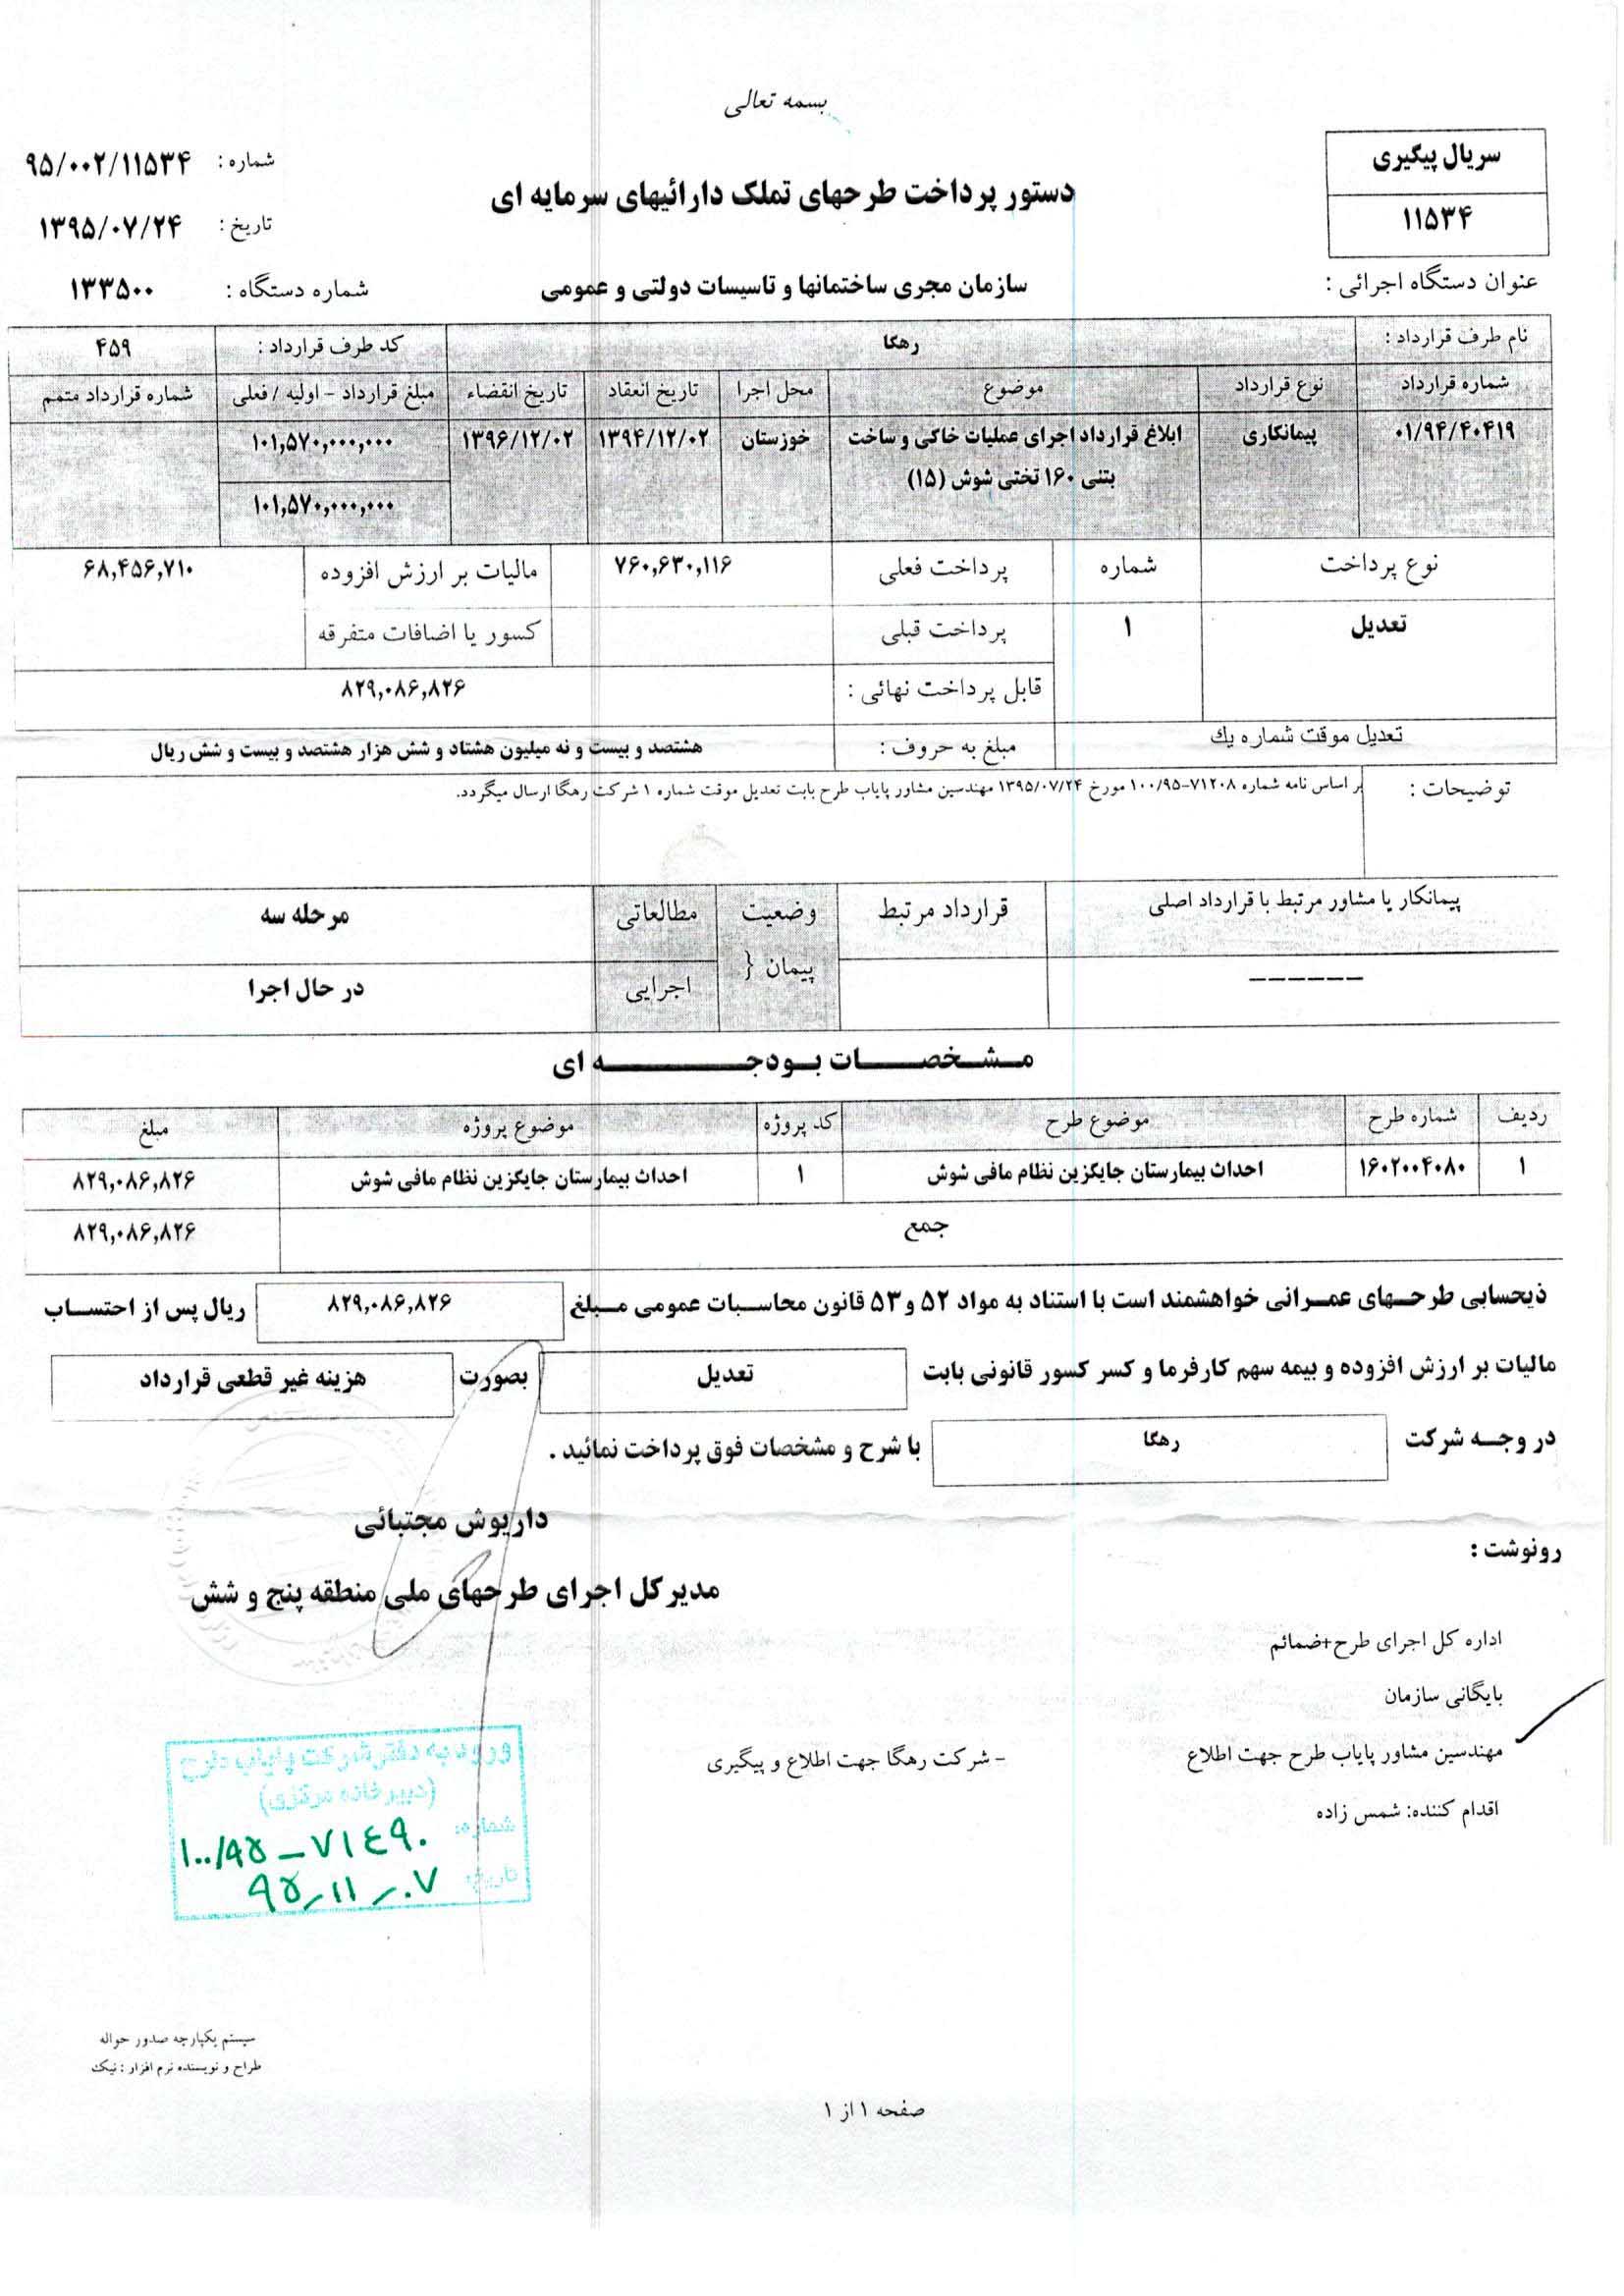 بسمه تعالی
سریال پیگیری
۱۱۵۳۴
دستور پرداخت طرحهای تملک دارائیهای سرمایه ای
شماره : ۹۵/۰۰۲/۱۱۵۳۴
تاریخ : ۱۳۹۵/۰۷/۲۴
عنوان دستگاه اجرائی : سازمان مجری ساختمانها و تاسیسات دولتی و عمومی شماره دستگاه : ۱۳۳۵۰۰
نام طرف قرارداد : رهگا کد طرف قرارداد : ۴۵۹
شماره قرارداد نوع قرارداد موضوع محل اجرا تاریخ انعقاد تاریخ انقضاء مبلغ قرارداد - اولیه / فعلی شماره قرارداد متمم
۰۱/۹۴/۴۰۴۱۹ پیمانکاری ابلاغ قرارداد اجرای عملیات خاکی و ساخت خوزستان ۱۳۹۴/۱۲/۰۲ ۱۳۹۶/۱۲/۰۲ ۱۰۱,۵۷۰,۰۰۰,۰۰۰
بتنی ۱۶۰ تختی شوش (۱۵)
۱۰۱,۵۷۰,۰۰۰,۰۰۰
نوع پرداخت شماره پرداخت فعلی ۷۶۰,۶۳۰,۱۱۶ مالیات بر ارزش افزوده ۶۸,۴۵۶,۷۱۰
تعدیل ۱ پرداخت قبلی کسور یا اضافات متفرقه
قابل پرداخت نهائی : ۸۲۹,۰۸۶,۸۲۶
تعدیل موقت شماره یك مبلغ به حروف : هشتصد و بیست و نه میلیون هشتاد و شش هزار هشتصد و بیست و شش ریال
توضیحات : بر اساس نامه شماره ۷۱۲۰۸-۱۰۰/۹۵ مورخ ۱۳۹۵/۰۷/۲۴ مهندسین مشاور پایاب طرح بابت تعدیل موقت شماره ۱ شرکت رهگا ارسال میگردد.
پیمانکار یا مشاور مرتبط با قرارداد اصلی قرارداد مرتبط وضعیت مطالعاتی مرحله سه
------ پیمان { اجرایی در حال اجرا
مشخصات بودجه ای
ردیف شماره طرح موضوع طرح کد پروژه موضوع پروژه مبلغ
۱ ۱۶۰۲۰۰۴۰۸۰ احداث بیمارستان جایگزین نظام مافی شوش ۱ احداث بیمارستان جایگزین نظام مافی شوش ۸۲۹,۰۸۶,۸۲۶
جمع ۸۲۹,۰۸۶,۸۲۶
ذیحسابی طرحهای عمرانی خواهشمند است با استناد به مواد ۵۲ و ۵۳ قانون محاسبات عمومی مبلغ ۸۲۹,۰۸۶,۸۲۶ ریال پس از احتساب
مالیات بر ارزش افزوده و بیمه سهم کارفرما و کسر کسور قانونی بابت تعدیل بصورت هزینه غیر قطعی قرارداد
در وجه شرکت رهگا با شرح و مشخصات فوق پرداخت نمائید .
داریوش مجتبائی
مدیرکل اجرای طرحهای ملی منطقه پنج و شش
رونوشت :
اداره کل اجرای طرح+ضمائم
بایگانی سازمان
مهندسین مشاور پایاب طرح جهت اطلاع - شرکت رهگا جهت اطلاع و پیگیری
اقدام کننده: شمس زاده
ورود به دفتر شرکت پایاب طرح
(دبیرخانه مرکزی)
شماره: ۱۰۰/۹۵-۷۱۴۹۰
تاریخ: ۹۵-۱۱-۰۷
سیستم یکپارچه صدور حواله
طراح و نویسنده نرم افزار : نیک
صفحه ۱ از ۱